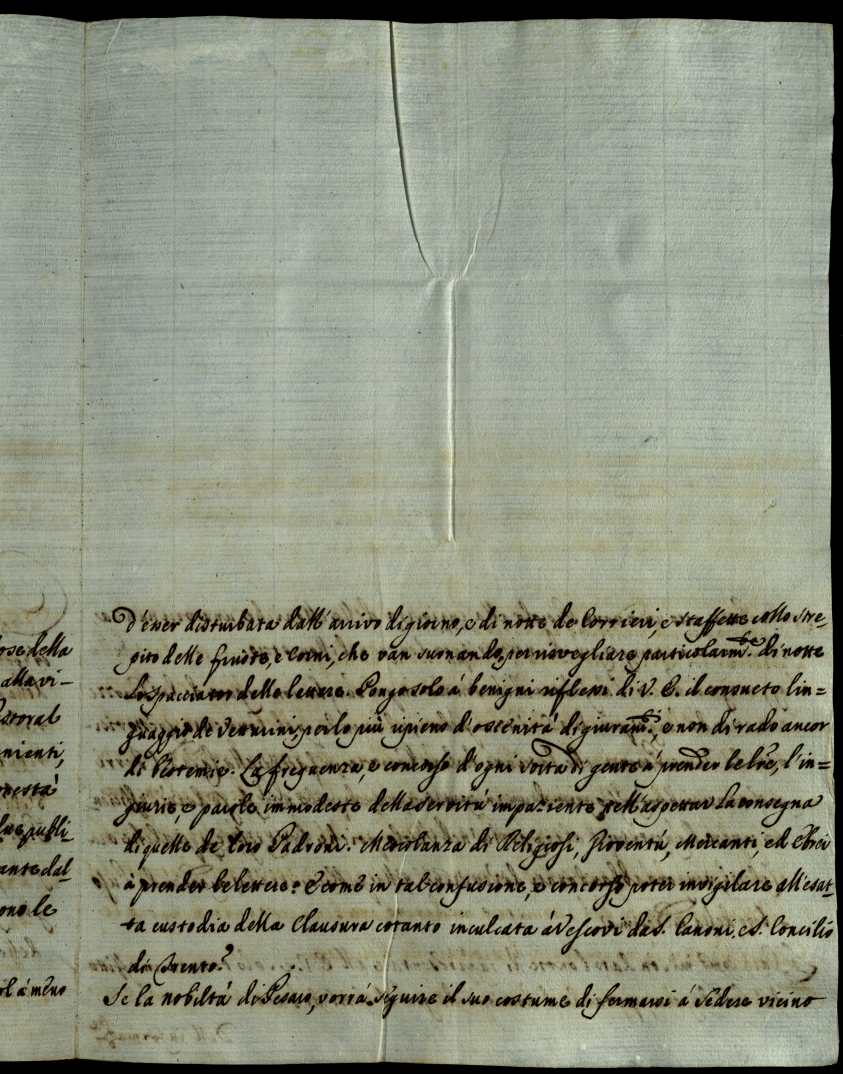 ose della
alla vi-
astoral
nienti,
onestá
due publi-
ante dal-
ono le
ol á meno
d'esser disturbata dall'arrivo di giorno, e di notte de Corrieri, e staffette collo stre,
pito delle fruste, e Corni, che van suonando, per risvegliare particolarmte. di notte
lo spacciator delle lettere. Pongo solo á benigni riflessi di V. E. il consueto lin=
guaggio de Vetturini, per lo più ripieno d'oscenitá di giuramti., e non di rado ancor
di Bestemie. La frequenza, e concorso d'ogni sorta di gente á prender le lre, l'in=
giurie, e parole immodeste della servitú impaziente nell'aspettar la consegna
di quelle de loro Padroni. Mescolanza di Religiosi, Gioventú, Mercanti, ed Ebrei
á prender le lettere: E come in tal confusione, e concorso poter invigilare all'esat-
ta custodia della Clausura cotanto inculcata á Vescovi da S. Canoni, e S. Concilio
di Trento?
Se la nobiltá di Pesaro, vorrá seguire il suo costume di fermarsi á sedere vicino